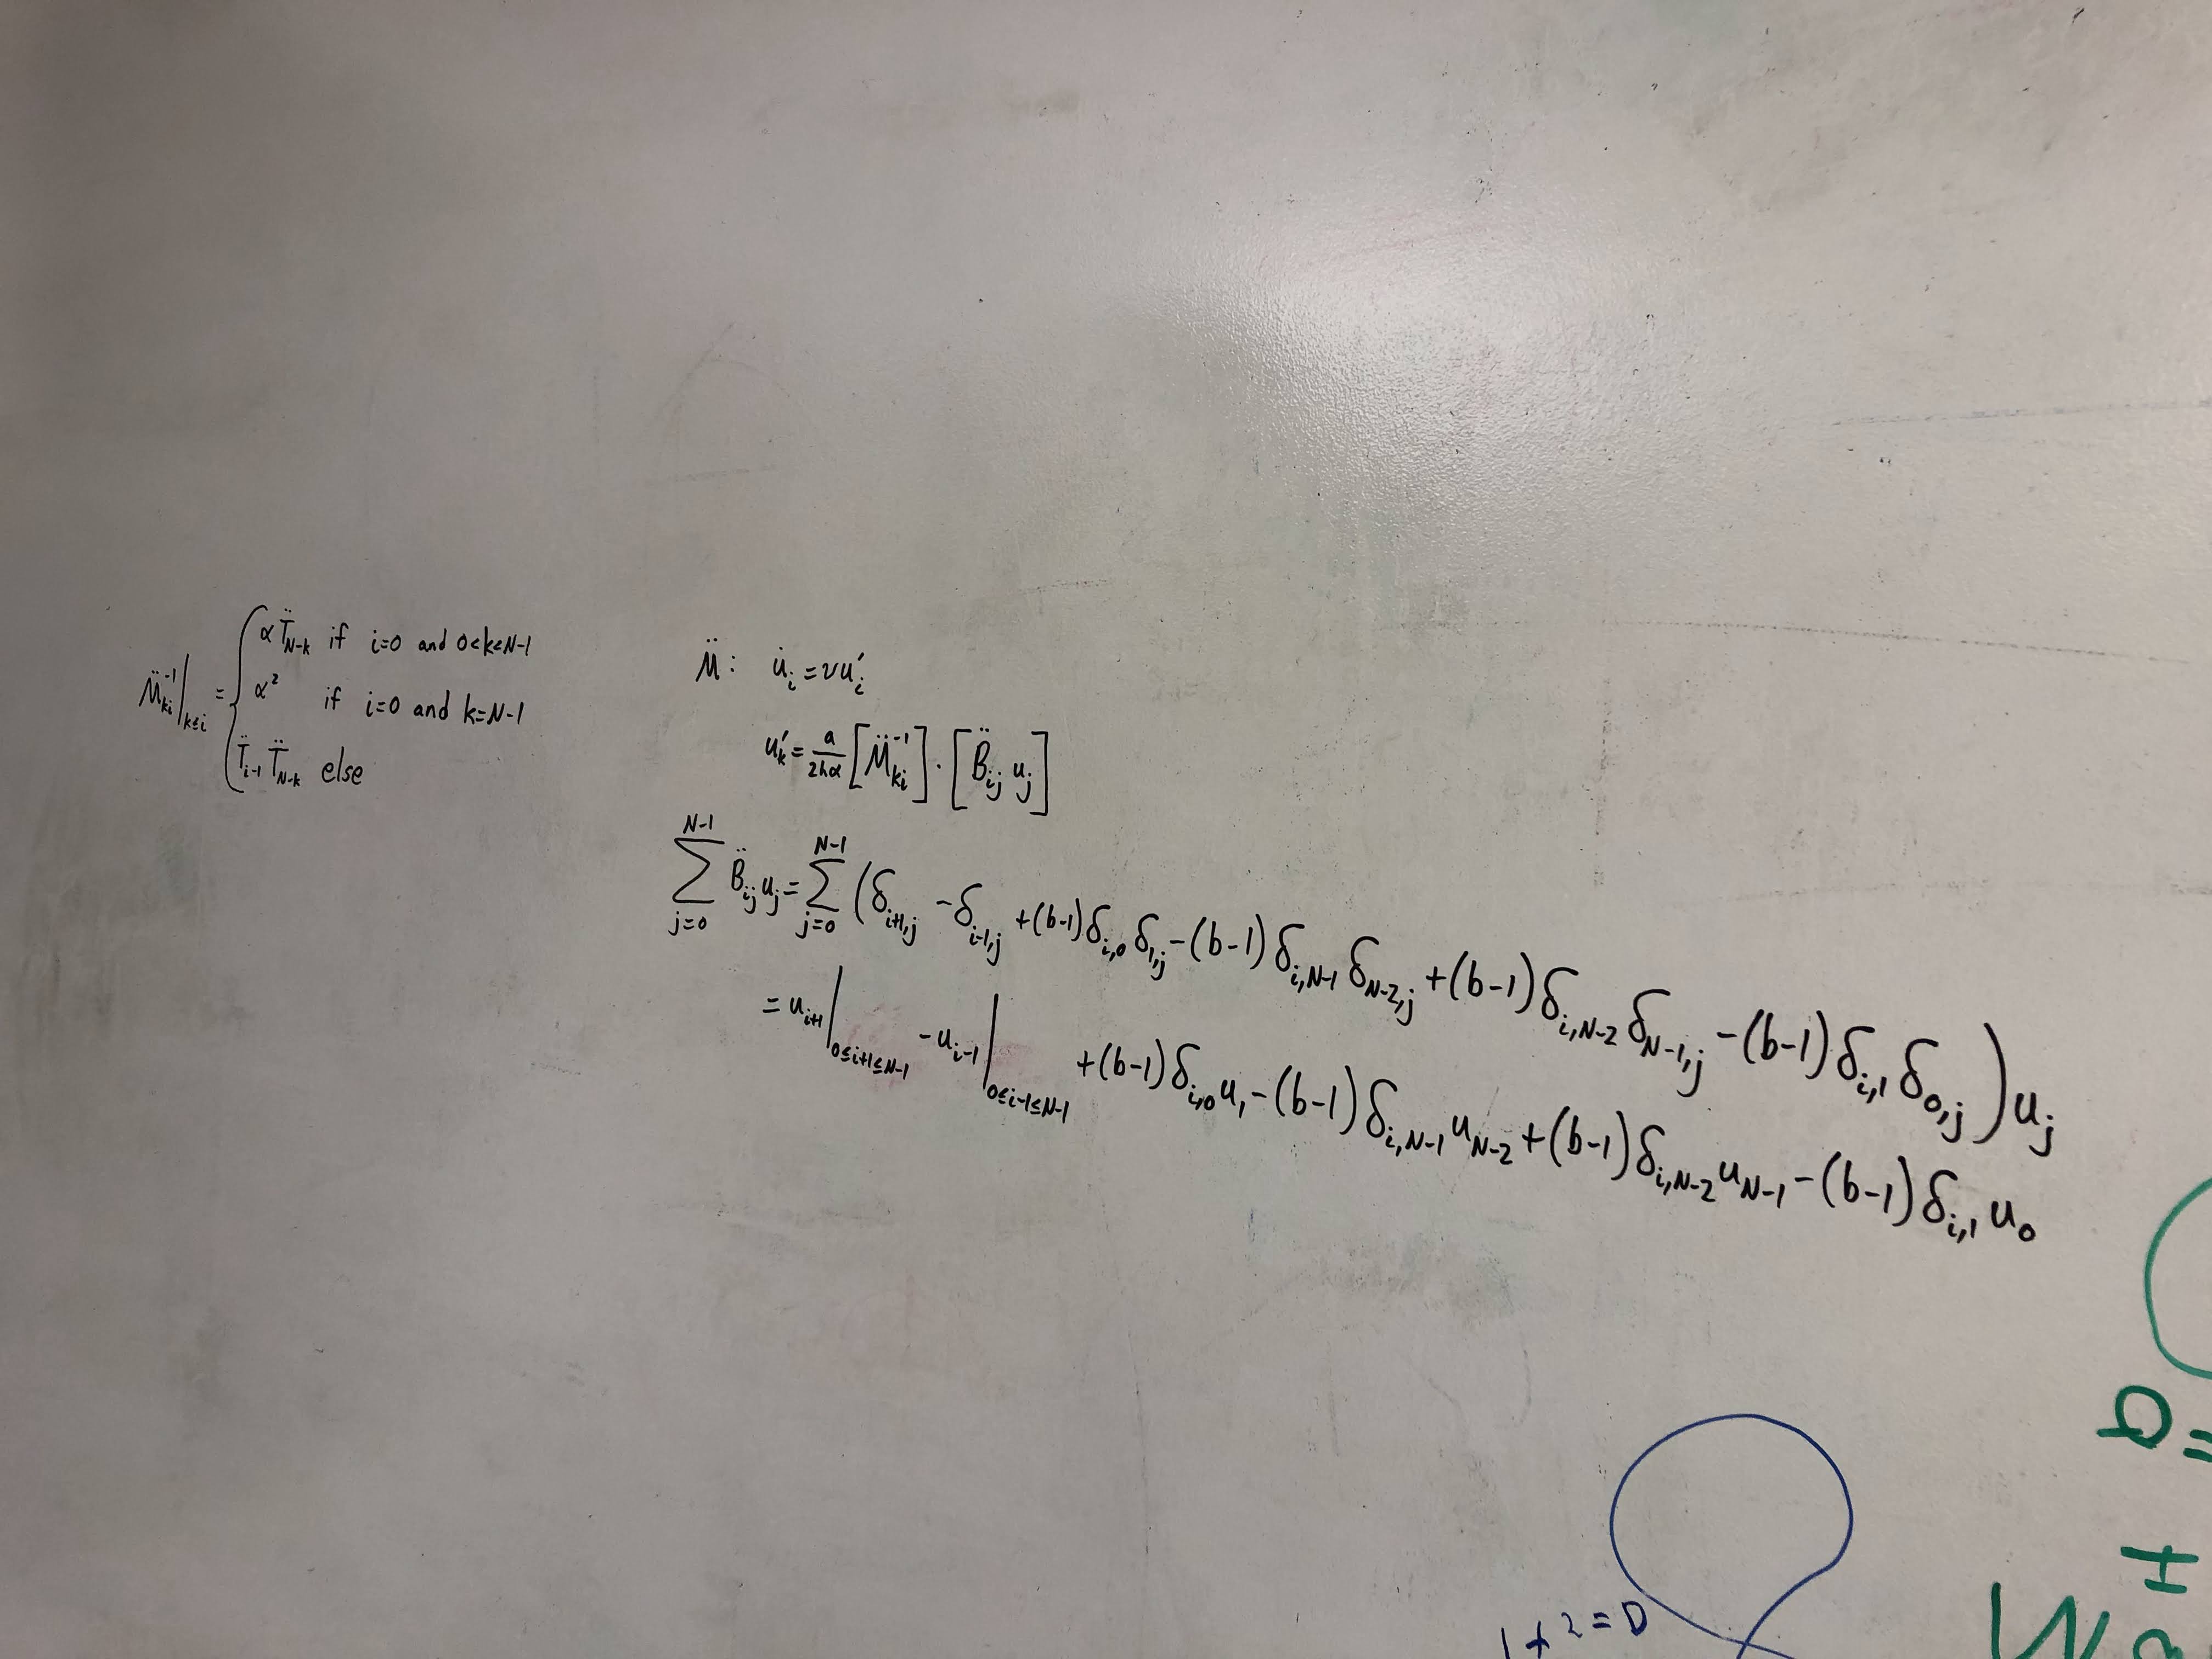 M̈⁻¹ₖᵢ|ₖ≤ᵢ = { αT̈_{N-k} if i=0 and 0<k<N-1
α² if i=0 and k=N-1
T̈_{i-1} T̈_{N-k} else
M̈: u̇ᵢ = νu′ᵢ
u′ₖ = a/(2hα) [M̈⁻¹ₖᵢ]·[B̈ᵢⱼ uⱼ]
∑_{j=0}^{N-1} B̈ᵢⱼ uⱼ = ∑_{j=0}^{N-1} (δ_{i+1,j} - δ_{i-1,j} + (b-1)δ_{i,0} δ_{1,j} - (b-1)δ_{i,N-1} δ_{N-2,j} + (b-1)δ_{i,N-2} δ_{N-1,j} - (b-1)δ_{i,1} δ_{0,j}) uⱼ
= u_{i+1}|_{0≤i+1≤N-1} - u_{i-1}|_{0≤i-1≤N-1} + (b-1)δ_{i,0} u₁ - (b-1)δ_{i,N-1} u_{N-2} + (b-1)δ_{i,N-2} u_{N-1} - (b-1)δ_{i,1} u₀
1+2=D